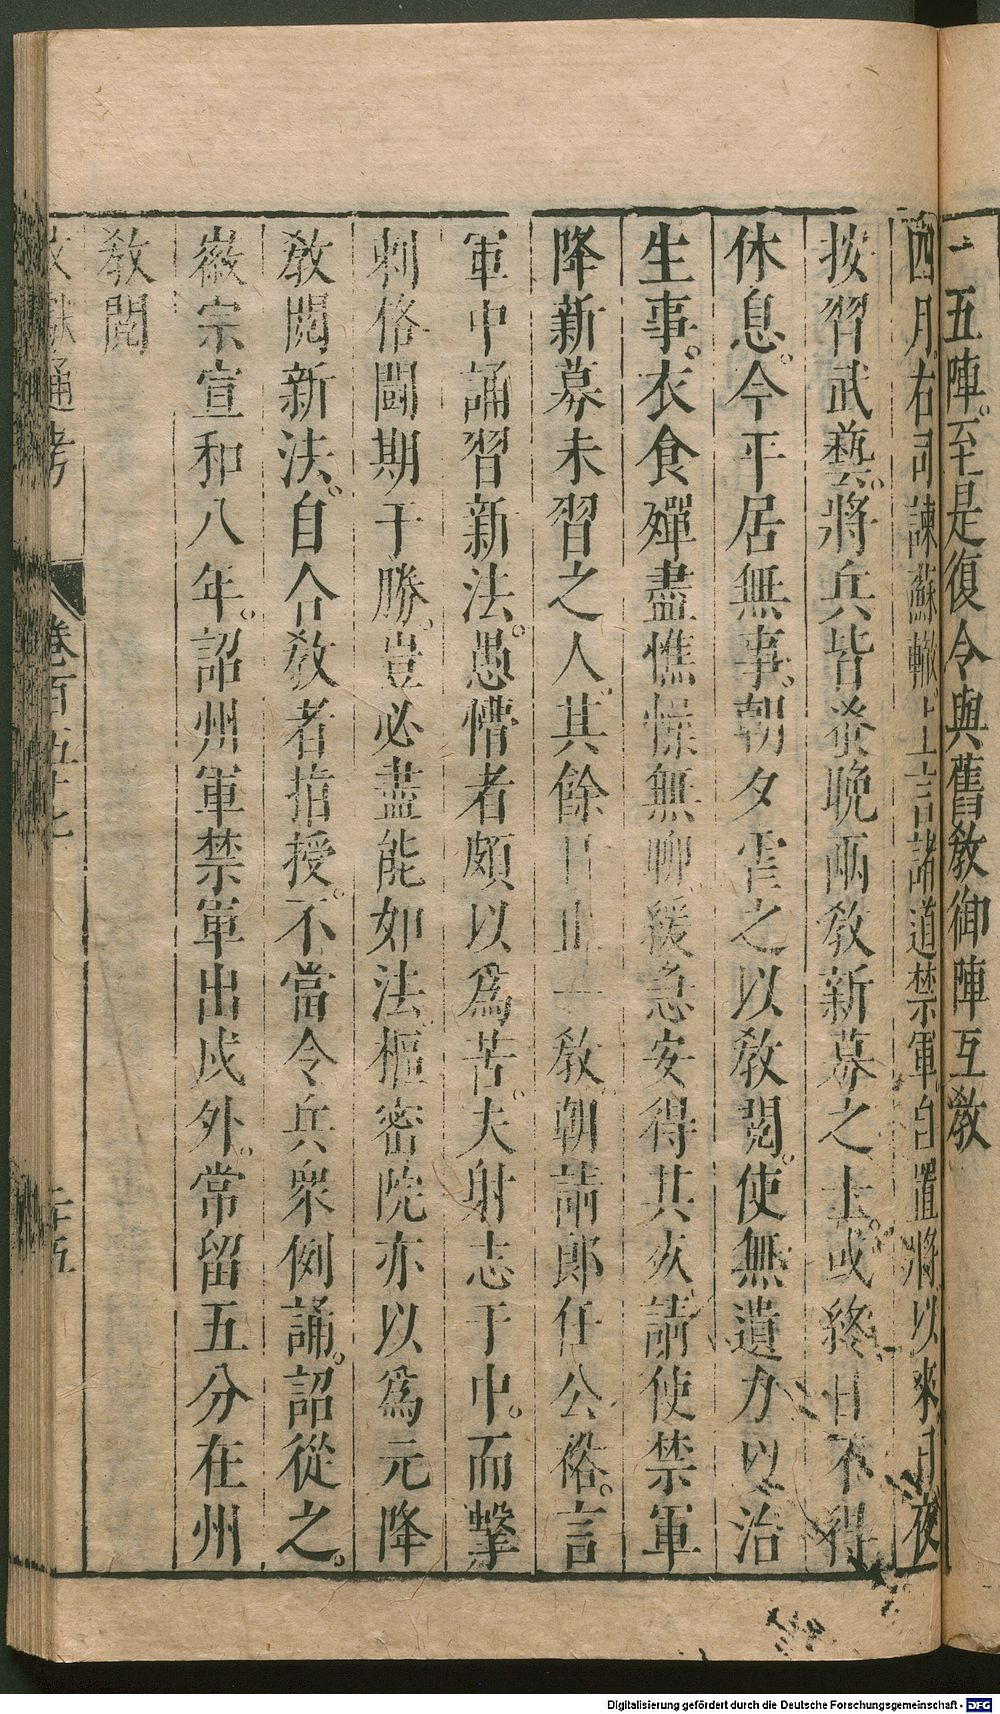 五陣。至是復令與舊教御陣互教
四月。右司諫蘇轍。上言諸道禁軍自置將以來。日夜
按習武藝。將兵皆發晚兩教新募之士。或終日不得
休息。今平居無事。朝夕虐之以教閱。使無遺力以治
生事。衣食殫盡憔悴無聊。緩急安得其死。請使禁軍
降新募未習之人。其餘日止一教朝請郎任公裕。言
軍中誦習新法。愚懵者頗以爲苦。夫射志于中。而擊
刺格鬪期于勝。豈必盡能如法。樞密院亦以爲元降
教閱新法。自合教者指授。不當令兵衆例誦。詔從之。
徽宗宣和八年。詔州軍禁軍出戍外。常留五分在州
教閱
文獻通考 卷百五十七 二十五
Digitalisierung gefördert durch die Deutsche Forschungsgemeinschaft - DFG